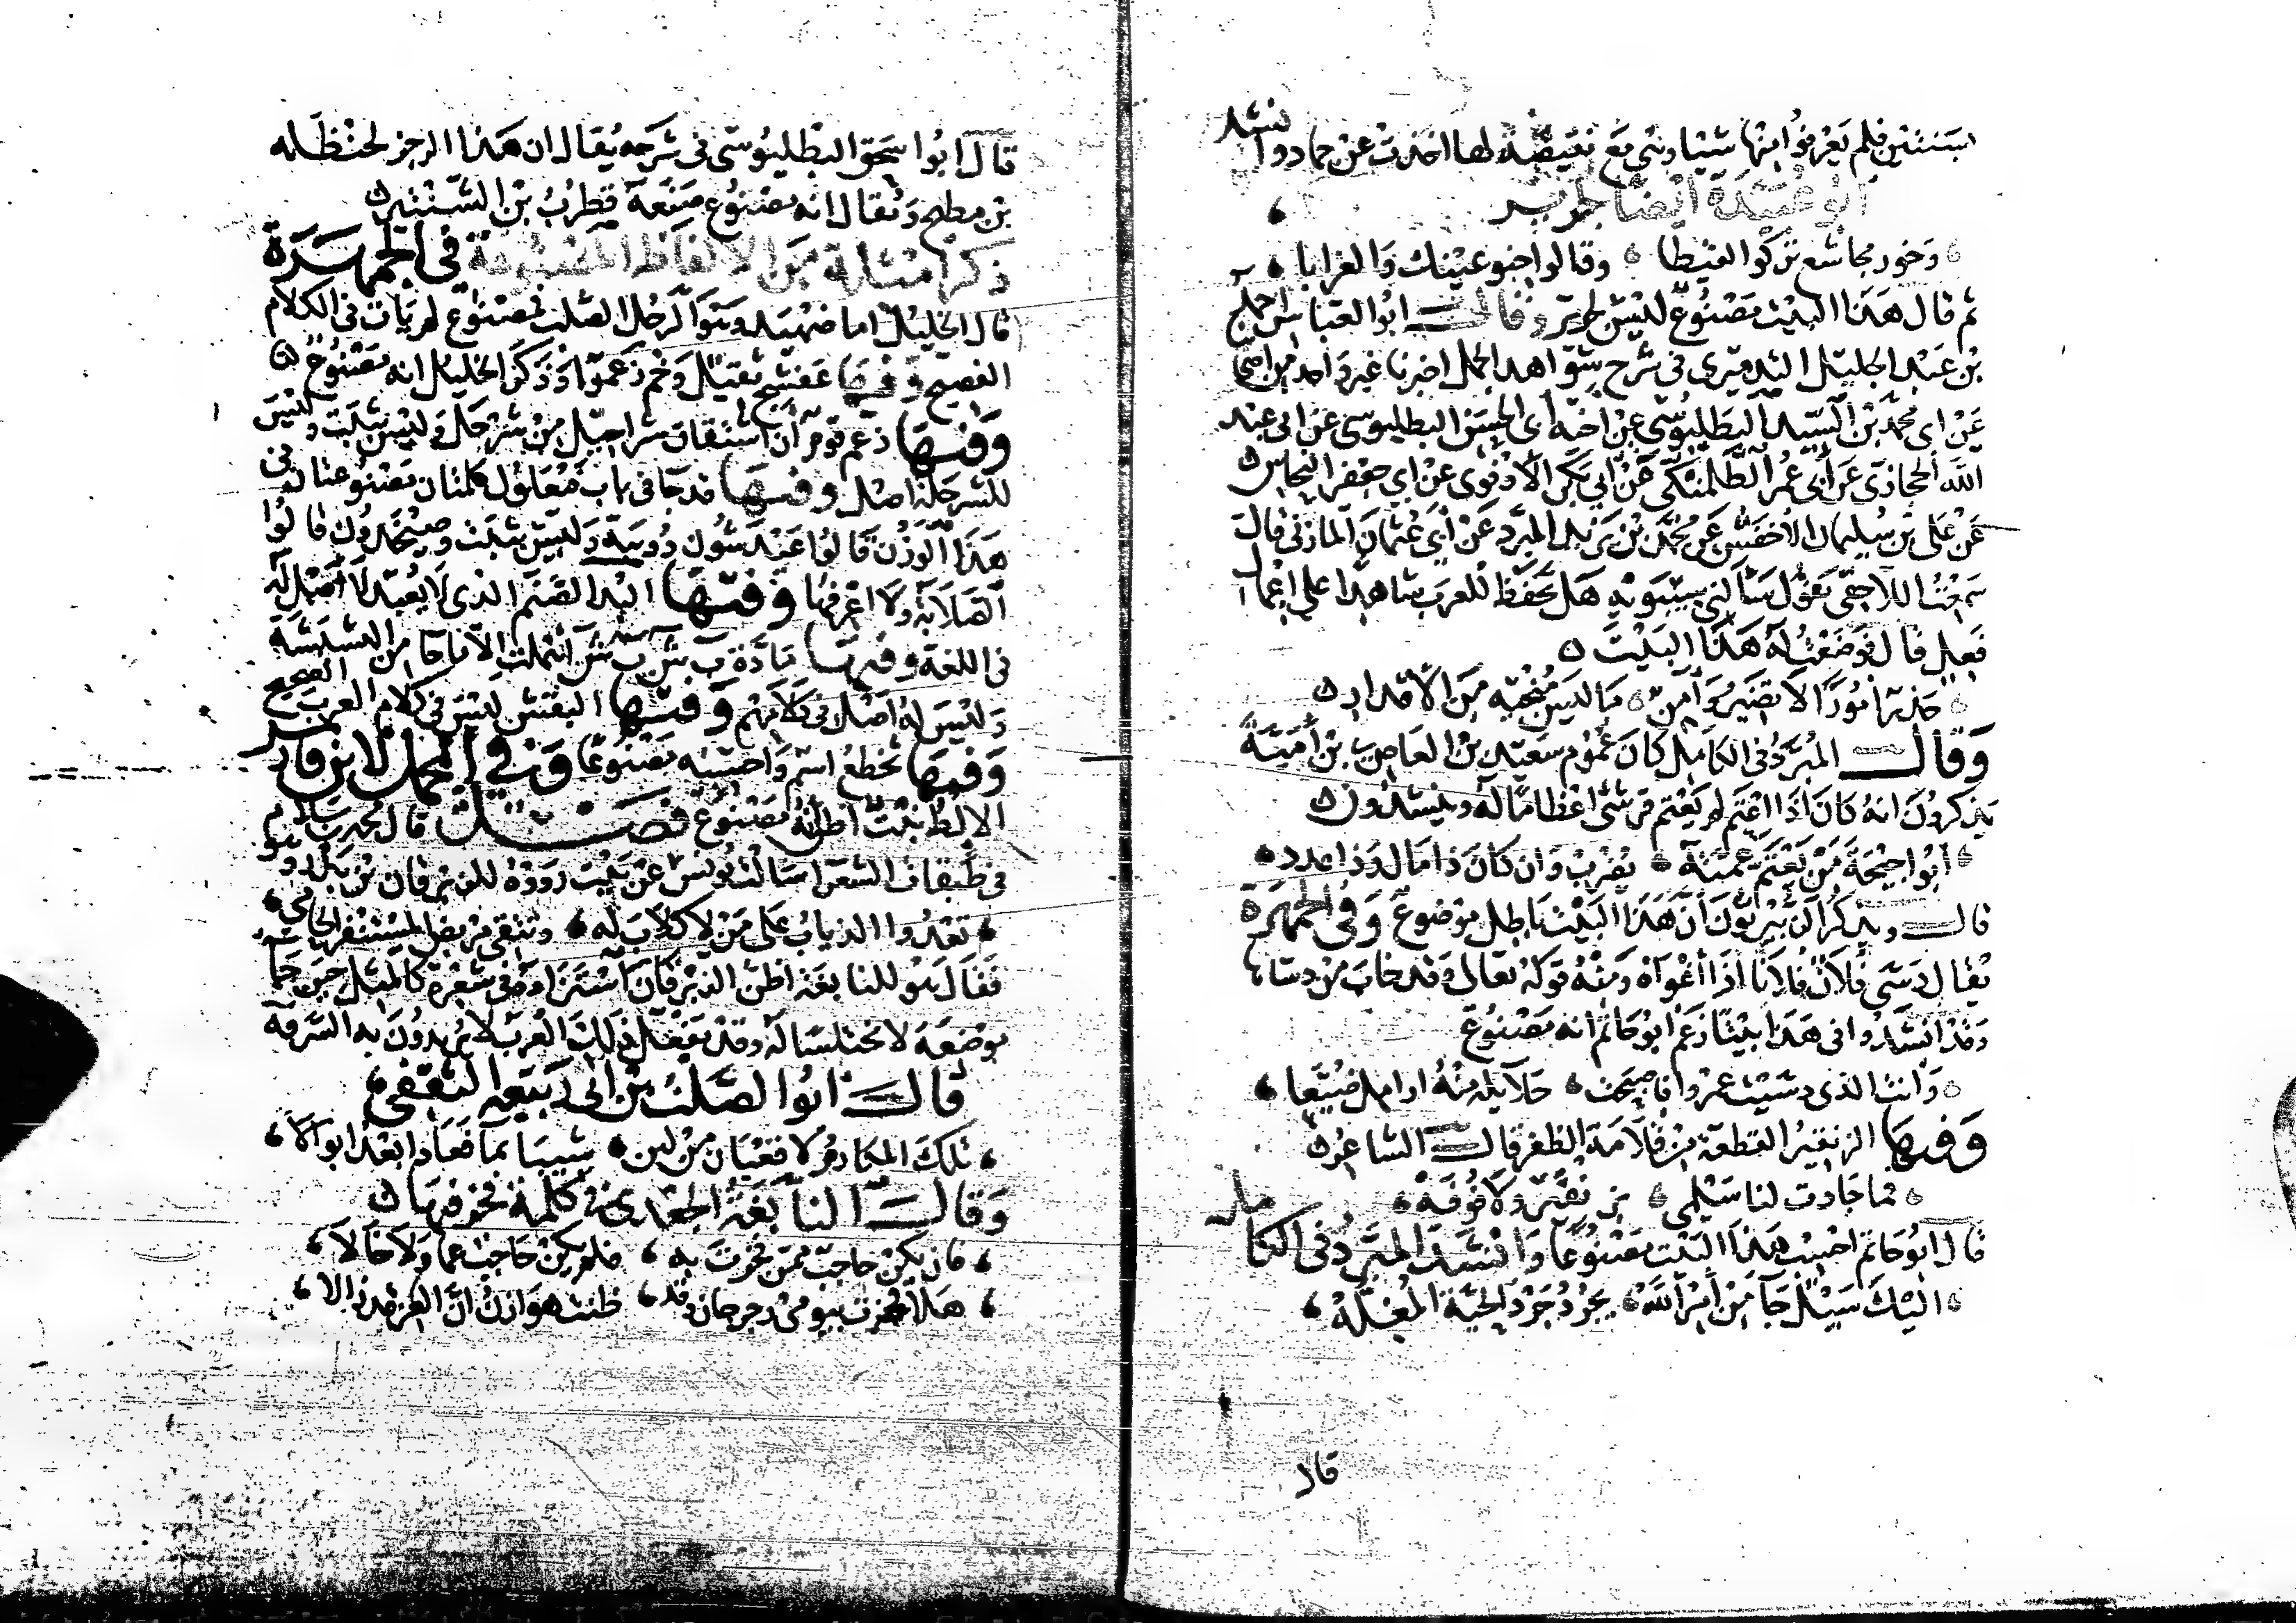 بسنتين فلم يعرفوا منها شيئا وهي مع نقيضة لها اخذت عن حماد وانشد
ابو عبيدة ايضا لجرير
وخور مجاشع تركوا لقيطا وقالوا حنو عينك والغرابا
ثم قال هذا البيت مصنوع ليس لجرير وقال ابو العباس احمد
بن عبد الجليل التدميري في شرح شواهد الجمل اخبرنا غير واحد من اصحابنا
عن ابي محمد بن السيد البطليوسي عن اخيه ابي الحسن البطليوسي عن ابي عبد
الله الحجازي عن ابي عمر الطلمنكي عن ابي بكر الادفوي عن ابي جعفر النحاس
عن علي بن سليمان الاخفش عن محمد بن يزيد المبرد عن ابي عثمان المازني قال
سمعت اللاحقي يقول سالني سيبويه هل تحفظ للعرب شاهدا على اعمال
فعل قال فوضعت له هذا البيت
حذر امورا لا تضير وآمن ما ليس منجيه من الاقدار
وقال المبرد في الكامل كان عموم سعيد بن العاصي بن امية
يذكرون انه كان اذا اعتم لم يعتم قرشي اعظاما له وينشدون
ابو احيحة من يعتم عمته يضرب وان كان ذا مال وذا عدد
قال ويذكر الزبيريون ان هذا البيت باطل موضوع وفي الجمهرة
يقال دسى فلان فلانا اذا اغواه ومنه قوله تعالى وقد خاب من دساها
وقد انشدوا في هذا بيتا زعم ابو حاتم انه مصنوع
وانت الذي دسيت عمرا فاصبحت حلائله منه ارامل ضيعا
وفيها الزنقير القطعة من قلامة الظفر قال الشاعر
فما جادت لنا سلمى بزنقير ولا فوفه
قال ابو حاتم احسب هذا البيت مصنوعا وانشد المبرد في الكامل
اليك سيل جا من امر الله يحرد حرد الحية المغله
قال
قال ابو اسحق البطليوسي في شرحه يقال ان هذا الرجز لحنظلة
بن مطيح ويقال انه مصنوع صنعه قطرب بن المستنير
ذكر امثلة من الالفاظ المصنوعة في الجمهرة
قال الخليل اما ضهيد وهو الرجل الصلب فمصنوع لم يات في الكلام
الفصيح وفيها عفشج ثقيل وخم زعموا وذكر الخليل انه مصنوع
وفيها زعم قوم ان اشتقاق شراحيل من شرحل وليس بثبت وليس
للشرحلة اصل وفيها قد جا في باب فعلول كلمتان مصنوعتان في
هذا الوزن قالوا عيدشون دويبة وليس بثبت وصيخدون قالوا
الصلابة ولا اعرفها وفيها البد الصنم الذي لا يعبد لا اصل له
في اللغة وفيها مادة ب ش ب ش اهملت الا ما جا من البشبشة
وليس له اصل في كلامهم وفيها البقش ليس في كلام العرب الصحيح
وفيها تخطع اسم واحسبه مصنوعا وفي المجمل لابن فارس
الالط نبت اظنه مصنوع فصل قال محمد بن سلام
في طبقات الشعرا سالت يونس عن بيت رووه للزبرقان بن بدر وهو
تعدوا الذياب على من لا كلاب له وتتقي مربض المستنفر الحامي
فقال هو للنابغة اظن الزبرقان استزاده في شعره كالمثل حين جا
موضعه لا مختلسا له وقد تفعل ذلك العرب لا يريدون به السرقة
قال ابو الصلت بن ابي ربيعة الثقفي
تلك المكارم لا قعبان من لبن شيبا بما فعادا بعد ابوالا
وقال النابغة الجعدي في كلمة فخر فيها
فان يكن حاجب ممن فخرت به فلم يكن حاجب عما ولا خالا
هلا فخرت بيومي رحرحان وقد ظنت هوازن ان العز قد زالا